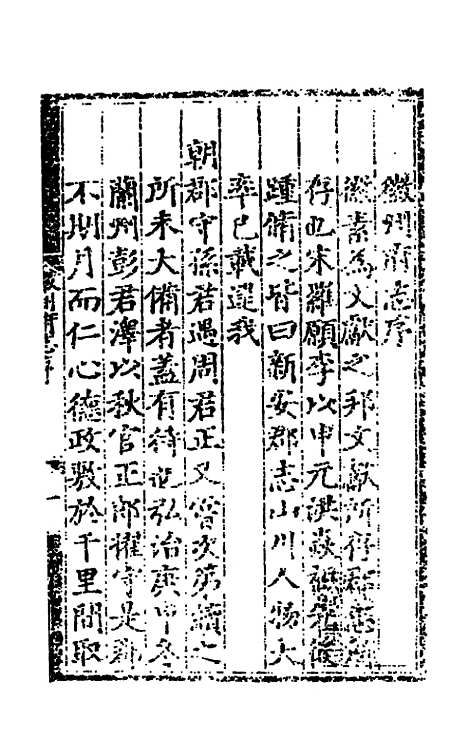 徽州府志序
徽素為文獻之邦文獻所存郡志所
存也宋羅願李以申元洪焱祖先後
踵脩之皆曰新安郡志山川人物大
率已載逮我
朝郡守孫君遇周君正又嘗次第續之
所未大備者蓋有待也弘治庚申冬
蘭州彭君澤以秋官正郎擢守是郡
不期月而仁心德政敷於千里間取
徽州府志序
一